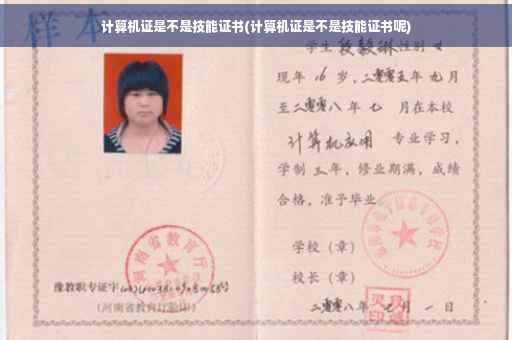 样本
计算机证是不是技能证书(计算机证是不是技能证书呢)
学生 段毅琳 性别 女
现年 16 岁，二零零五年 九月
至二零零八年 七 月在本校
计算机应用 专业学习，
学制 三 年，修业期满，成绩
合格，准予毕业。
学校（章）
校长（章）
二零零八年 七月 一日
豫教职专证字
(河南省教育厅验印)
河南省教育厅